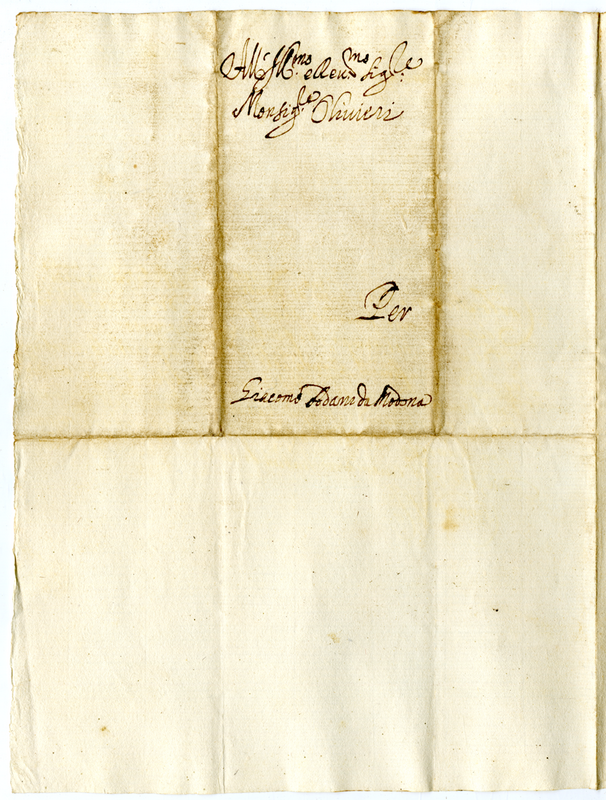 All Ill.mo e Reu.mo Sig.re
Monsig.re Oliuieri
Per
Giacomo Rodano da Modona